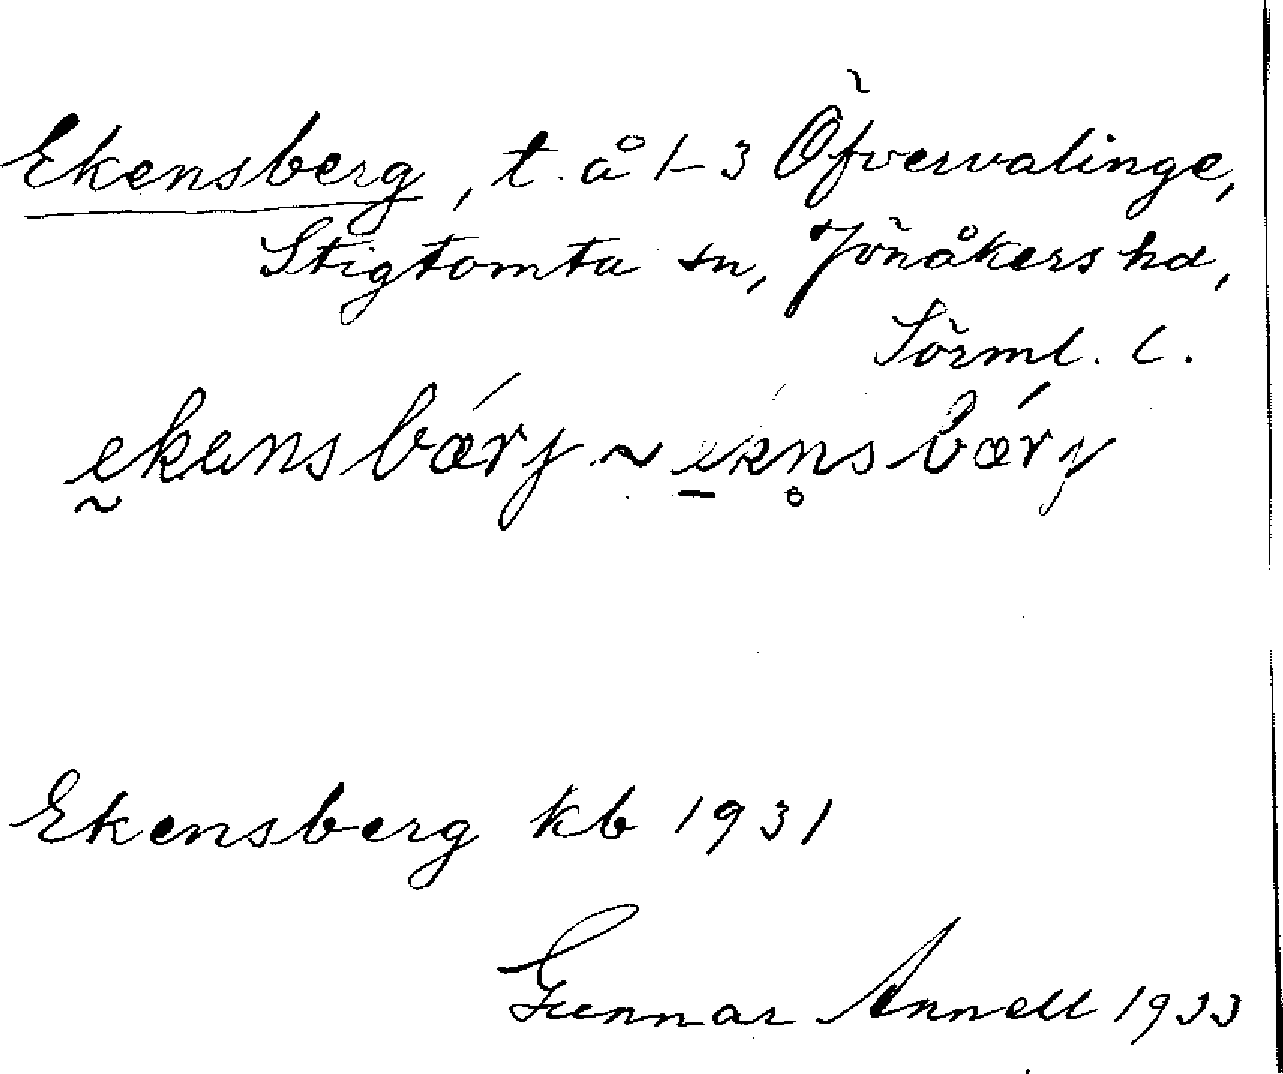 Ekensberg, t. å 1-3 Öfvervalinge,
Stigtomta sn, Jönåkers hd,
Sörml. l.
ekensbærj ~ eknsbærj
Ekensberg kb 1931
Gunnar Annell 1933